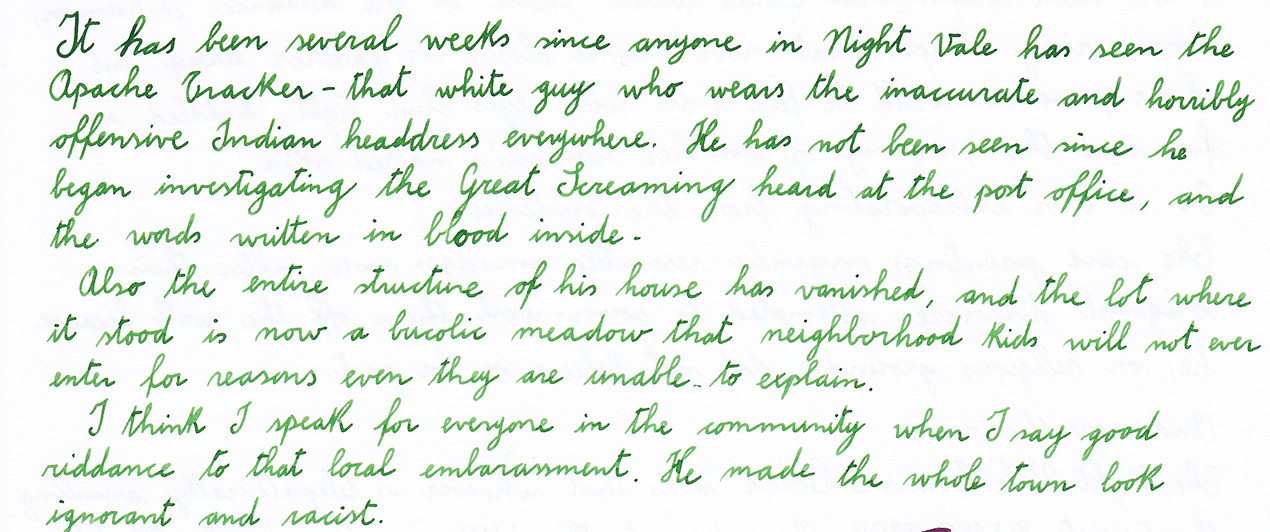 It has been several weeks since anyone in Night Vale has seen the
Apache Tracker - that white guy who wears the inaccurate and horribly
offensive Indian headdress everywhere. He has not been seen since he
began investigating the Great Screaming heard at the post office, and
the words written in blood inside.
Also the entire structure of his house has vanished, and the lot where
it stood is now a bucolic meadow that neighborhood kids will not ever
enter for reasons even they are unable to explain.
I think I speak for everyone in the community when I say good
riddance to that local embarassment. He made the whole town look
ignorant and racist.